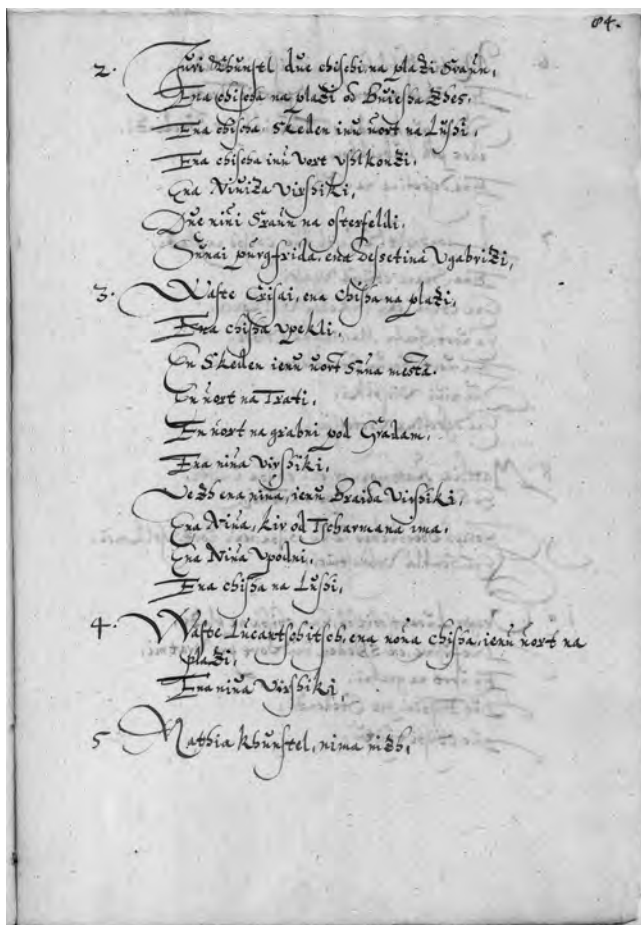 84.
2. Juri Khunstl due chischi na plazi Sraun,
Ena chischa na plazi od Buiessa Zhes,
Ena chischa Skeden inu uort na Lushi,
Ena chischa inu Vort
Ena Niuiza Virshiki,
Due niui Sraun na osterfeldi,
Sunai purgfrida, ena Dessetina Vgabrizi,
3. Waste Crisai, ena chisha na plazi,
Ena chisha Vpekli,
En Skeden ienu uort suna mesta.
En uort na Trati,
En uort na grabni pod Gradam,
Ena niua Virshiki,
Vezh ena niua, ienu Braida Virshiki,
Ena Niua, kir od Tscharmana ima,
Ena Niua Vpodni,
Ena chisha na Lushi,
4. Waste Lucantschitsch, ena noua chisha, ienu uort na
plazi,
Ena niua Virshiki,
5 Mathia khunstel, nima nizh,